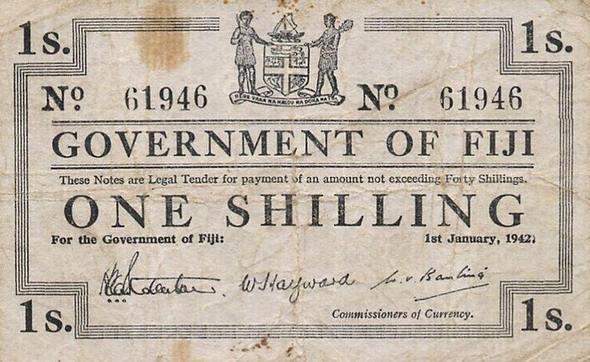 1s. 1s.
Nº 61946 Nº 61946
GOVERNMENT OF FIJI
These Notes are Legal Tender for payment of an amount not exceeding Forty Shillings.
ONE SHILLING
For the Government of Fiji: 1st January, 1942.
W Hayward
Commissioners of Currency.
1s. 1s.